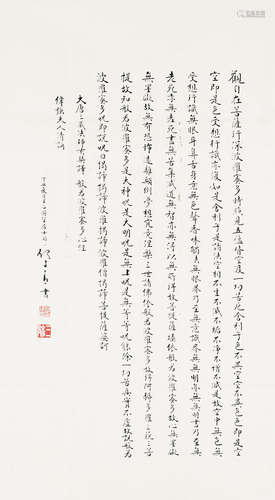 觀自在菩薩行深般若波羅蜜多時照見五蘊皆空度一切苦厄舍利子色不異空空不異色色即是空
空即是色受想行識亦復如是舍利子是諸法空相不生不滅不垢不淨不增不減是故空中無色無
受想行識無眼耳鼻舌身意無色聲香味觸法無眼界乃至無意識界無無明亦無無明盡乃至無
老死亦無老死盡無苦集滅道無智亦無得以無所得故菩提薩埵依般若波羅蜜多故心無罣礙
無罣礙故無有恐怖遠離顛倒夢想究竟涅槃三世諸佛依般若波羅蜜多故得阿耨多羅三藐三菩
提故知般若波羅蜜多是大神咒是大明咒是無上咒是無等等咒能除一切苦真實不虛故說般若
波羅蜜多咒即說咒曰揭諦揭諦波羅揭諦波羅僧揭諦菩提薩婆訶
大唐三藏法師玄奘譯 般若波羅蜜多心經
夫人清誦
書